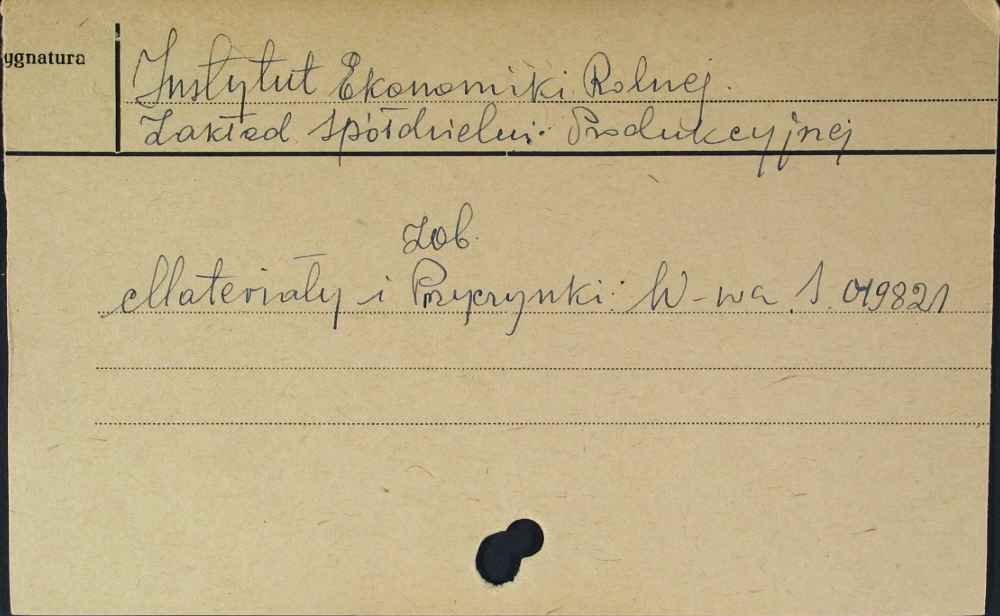 ygnatura
Instytut Ekonomiki Rolnej.
Zakład Spółdzielni Produkcyjnej
zob.
Materiały i Przyczynki. W-wa S. 019821